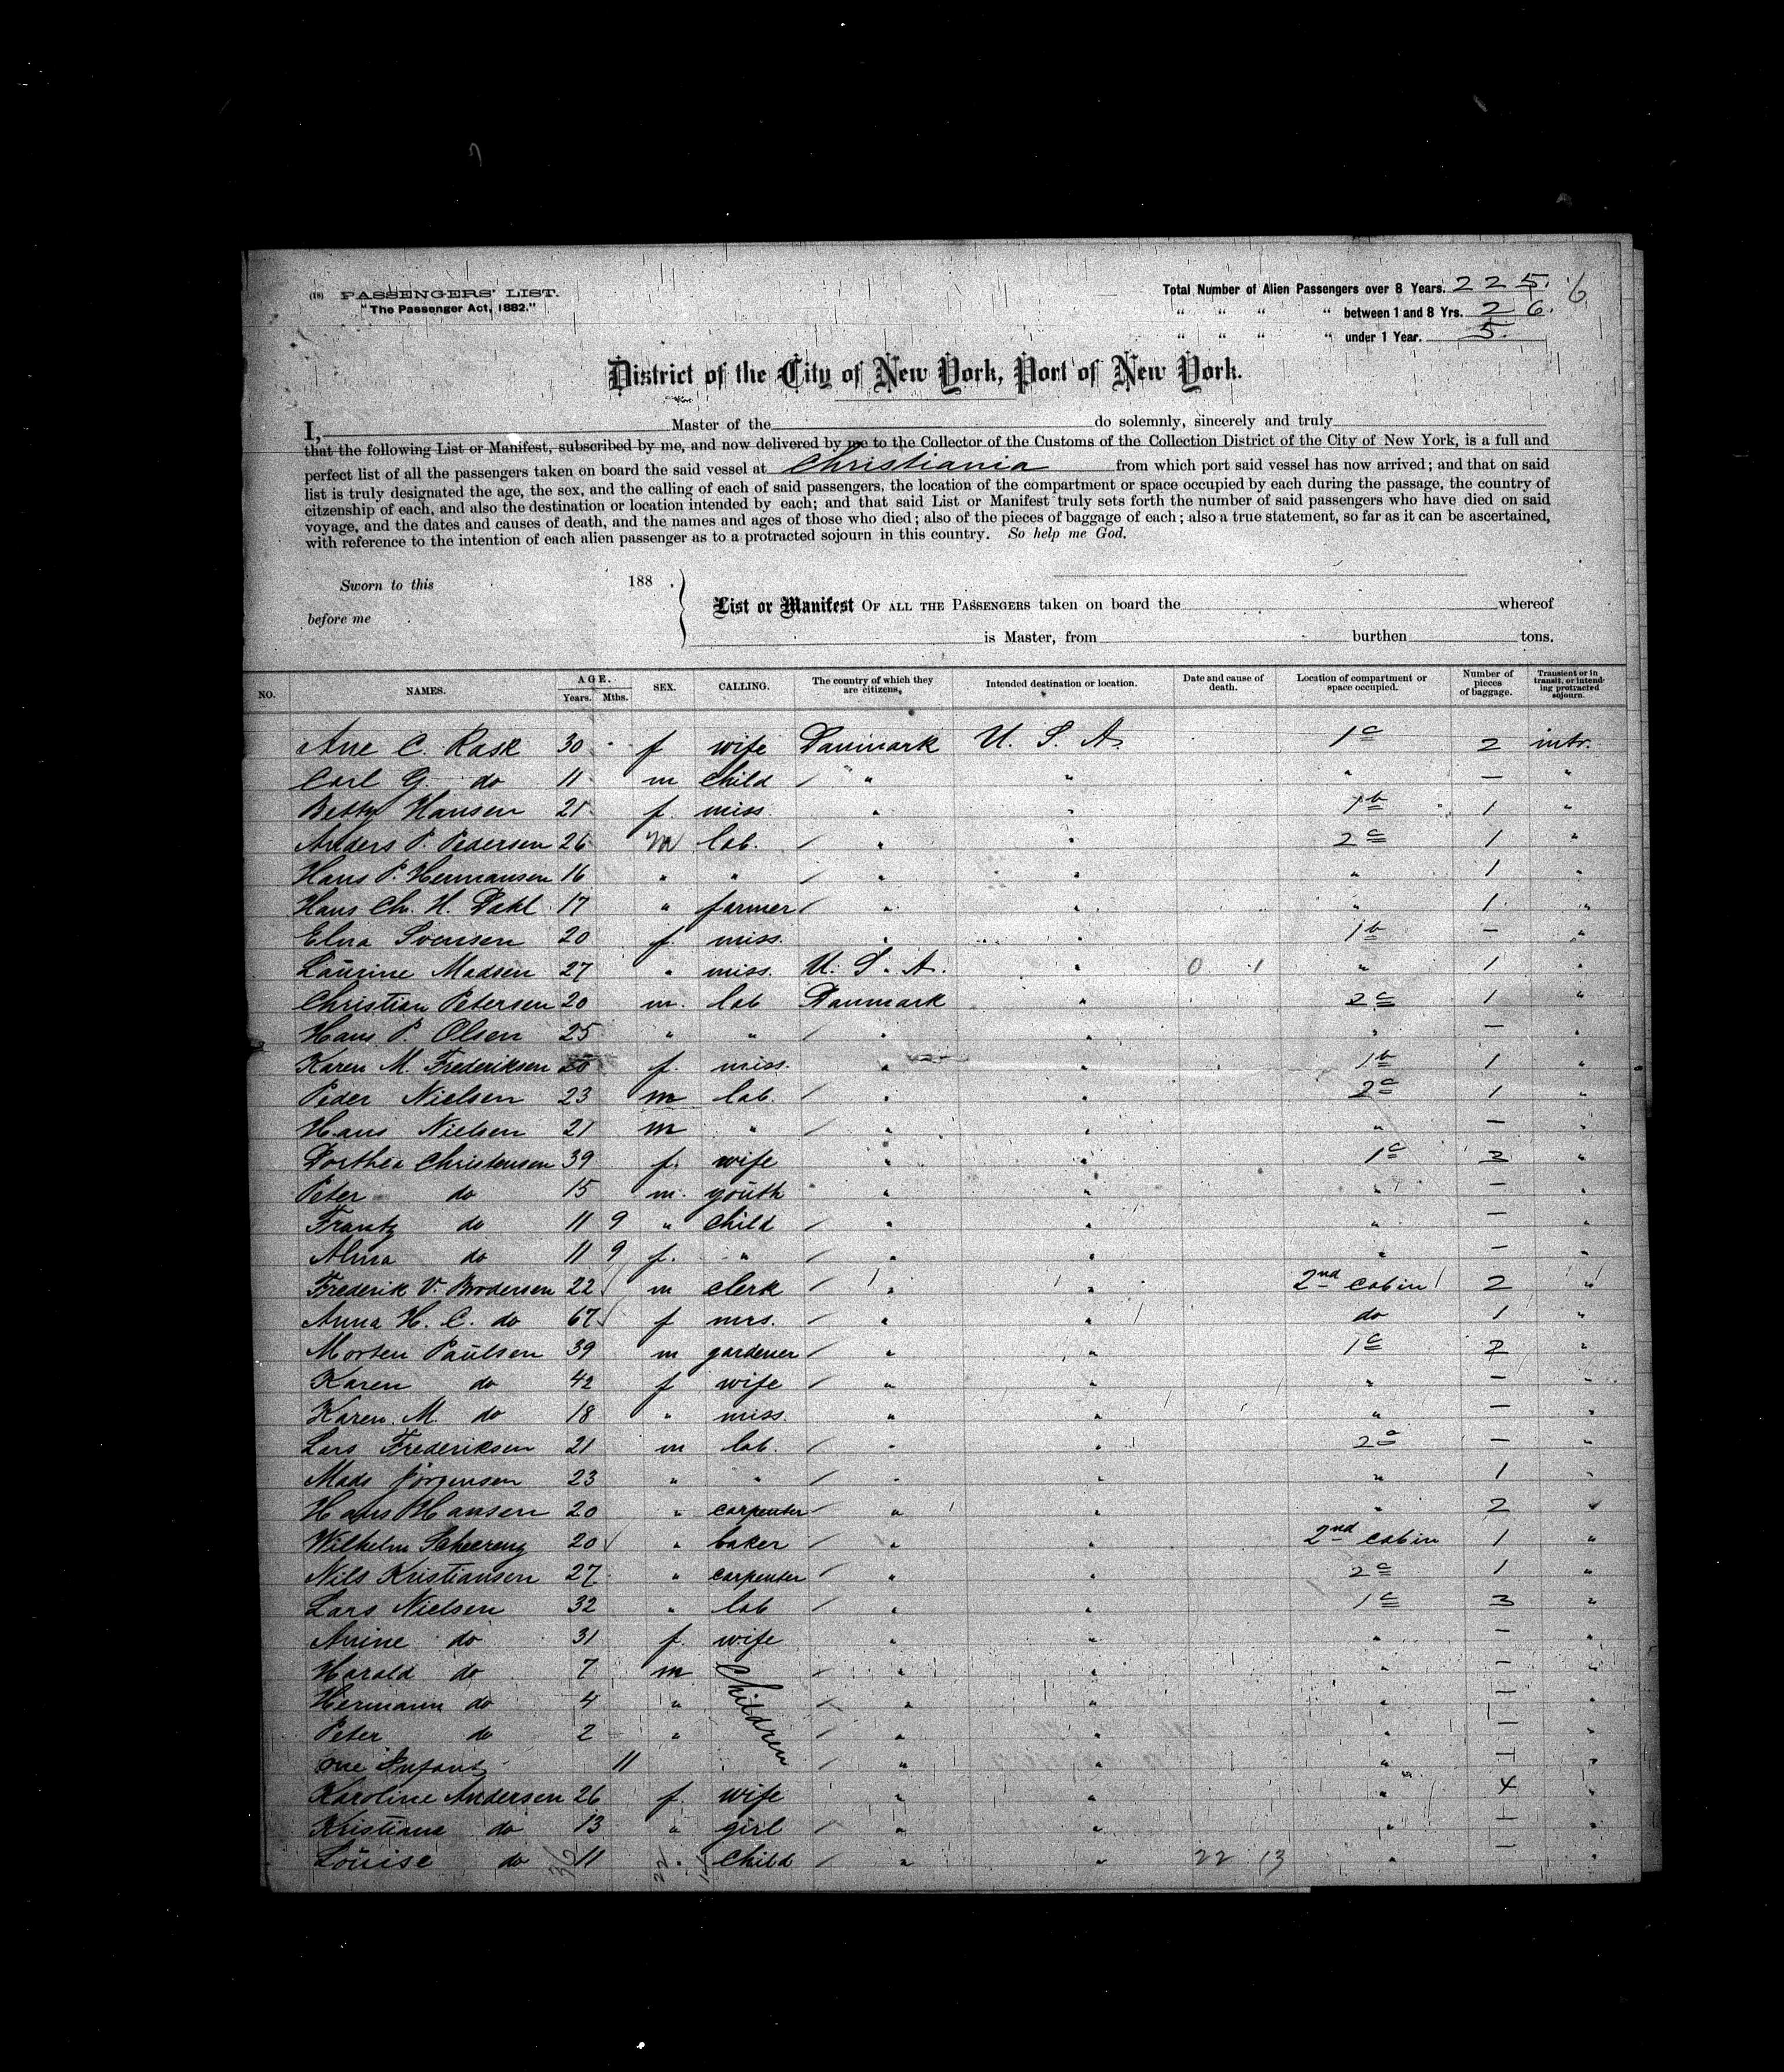 (18) PASSENGERS' LIST.
"The Passenger Act, 1882."
Total Number of Alien Passengers over 8 Years. 225. 6
" " " " between 1 and 8 Yrs. 26.
" " " " under 1 Year. 5.
District of the City of New York, Port of New York.
I, Master of the do solemnly, sincerely and truly
that the following List or Manifest, subscribed by me, and now delivered by me to the Collector of the Customs of the Collection District of the City of New York, is a full and
perfect list of all the passengers taken on board the said vessel at Christiania from which port said vessel has now arrived; and that on said
list is truly designated the age, the sex, and the calling of each of said passengers, the location of the compartment or space occupied by each during the passage, the country of
citzenship of each, and also the destination or location intended by each; and that said List or Manifest truly sets forth the number of said passengers who have died on said
voyage, and the dates and causes of death, and the names and ages of those who died; also of the pieces of baggage of each; also a true statement, so far as it can be ascertained,
with reference to the intention of each alien passenger as to a protracted sojourn in this country. So help me God.
Sworn to this 188 .
before me
List or Manifest OF ALL THE PASSENGERS taken on board the whereof
is Master, from burthen tons.
NO. NAMES. AGE. Years. Mths. SEX. CALLING. The country of which they are citizens. Intended destination or location. Date and cause of death. Location of compartment or space occupied. Number of pieces of baggage. Transient or in transit, or intending protracted sojourn.
Ane C. Rask 30 f wife Danmark U. S. A. 1c 2 intr.
Carl G. do 11 m child " " " — "
Betty Hansen 21 f. miss. " " 1b 1 "
Anders P. Pedersen 26 m lab. " " 2c 1 "
Hans P. Hermansen 16 " " " " " 1 "
Hans Chr. H. Dahl 17 " farmer " " " 1 "
Elna Svensen 20 f. miss. " " 1b — "
Laurine Madsen 27 " miss. U. S. A. " 0 1 " 1 "
Christian Petersen 20 m. lab Danmark " 2c 1 "
Hans P. Olsen 25 " " " " " — "
Karen M. Frederiksen 20 f. miss. " " 1b 1 "
Peder Nielsen 23 m lab. " " 2c 1 "
Hans Nielsen 21 m " " " " — "
Dorthea Christensen 39 f. wife " " 1c 3 "
Peter do 15 m. youth " " " — "
Frantz do 11 9 " child " " " — "
Alma do 11 9 f. " " " " — "
Frederik V. Brodersen 22 m clerk " " 2nd cabin 2 "
Anna H. C. do 67 f mrs. " " do 1 "
Morten Paulsen 39 m gardener " " 1c 2 "
Karen do 42 f wife " " " — "
Karen M do 18 " miss. " " " — "
Lars Frederiksen 21 m lab. " " 2c — "
Mads Jörgensen 23 " " " " " 1 "
Hans Hansen 20 " carpenter " " " 2 "
Wilhelm 20 " baker " " 2nd cabin 1 "
Nils Kristiansen 27 " carpenter " " 2c 1 "
Lars Nielsen 32 " lab " " 1c 3 "
Anine do 31 f. wife " " " — "
Harald do 7 m Children " " " — "
Hermann do 4 " " " " — "
Peter do 2 " " " " — "
one Infant 11 " " " — "
Karoline Andersen 26 f. wife " " " 4 "
Kristiane do 13 " girl " " " — "
Louise do 11 " child " " 22 13 " — "
36 22 14